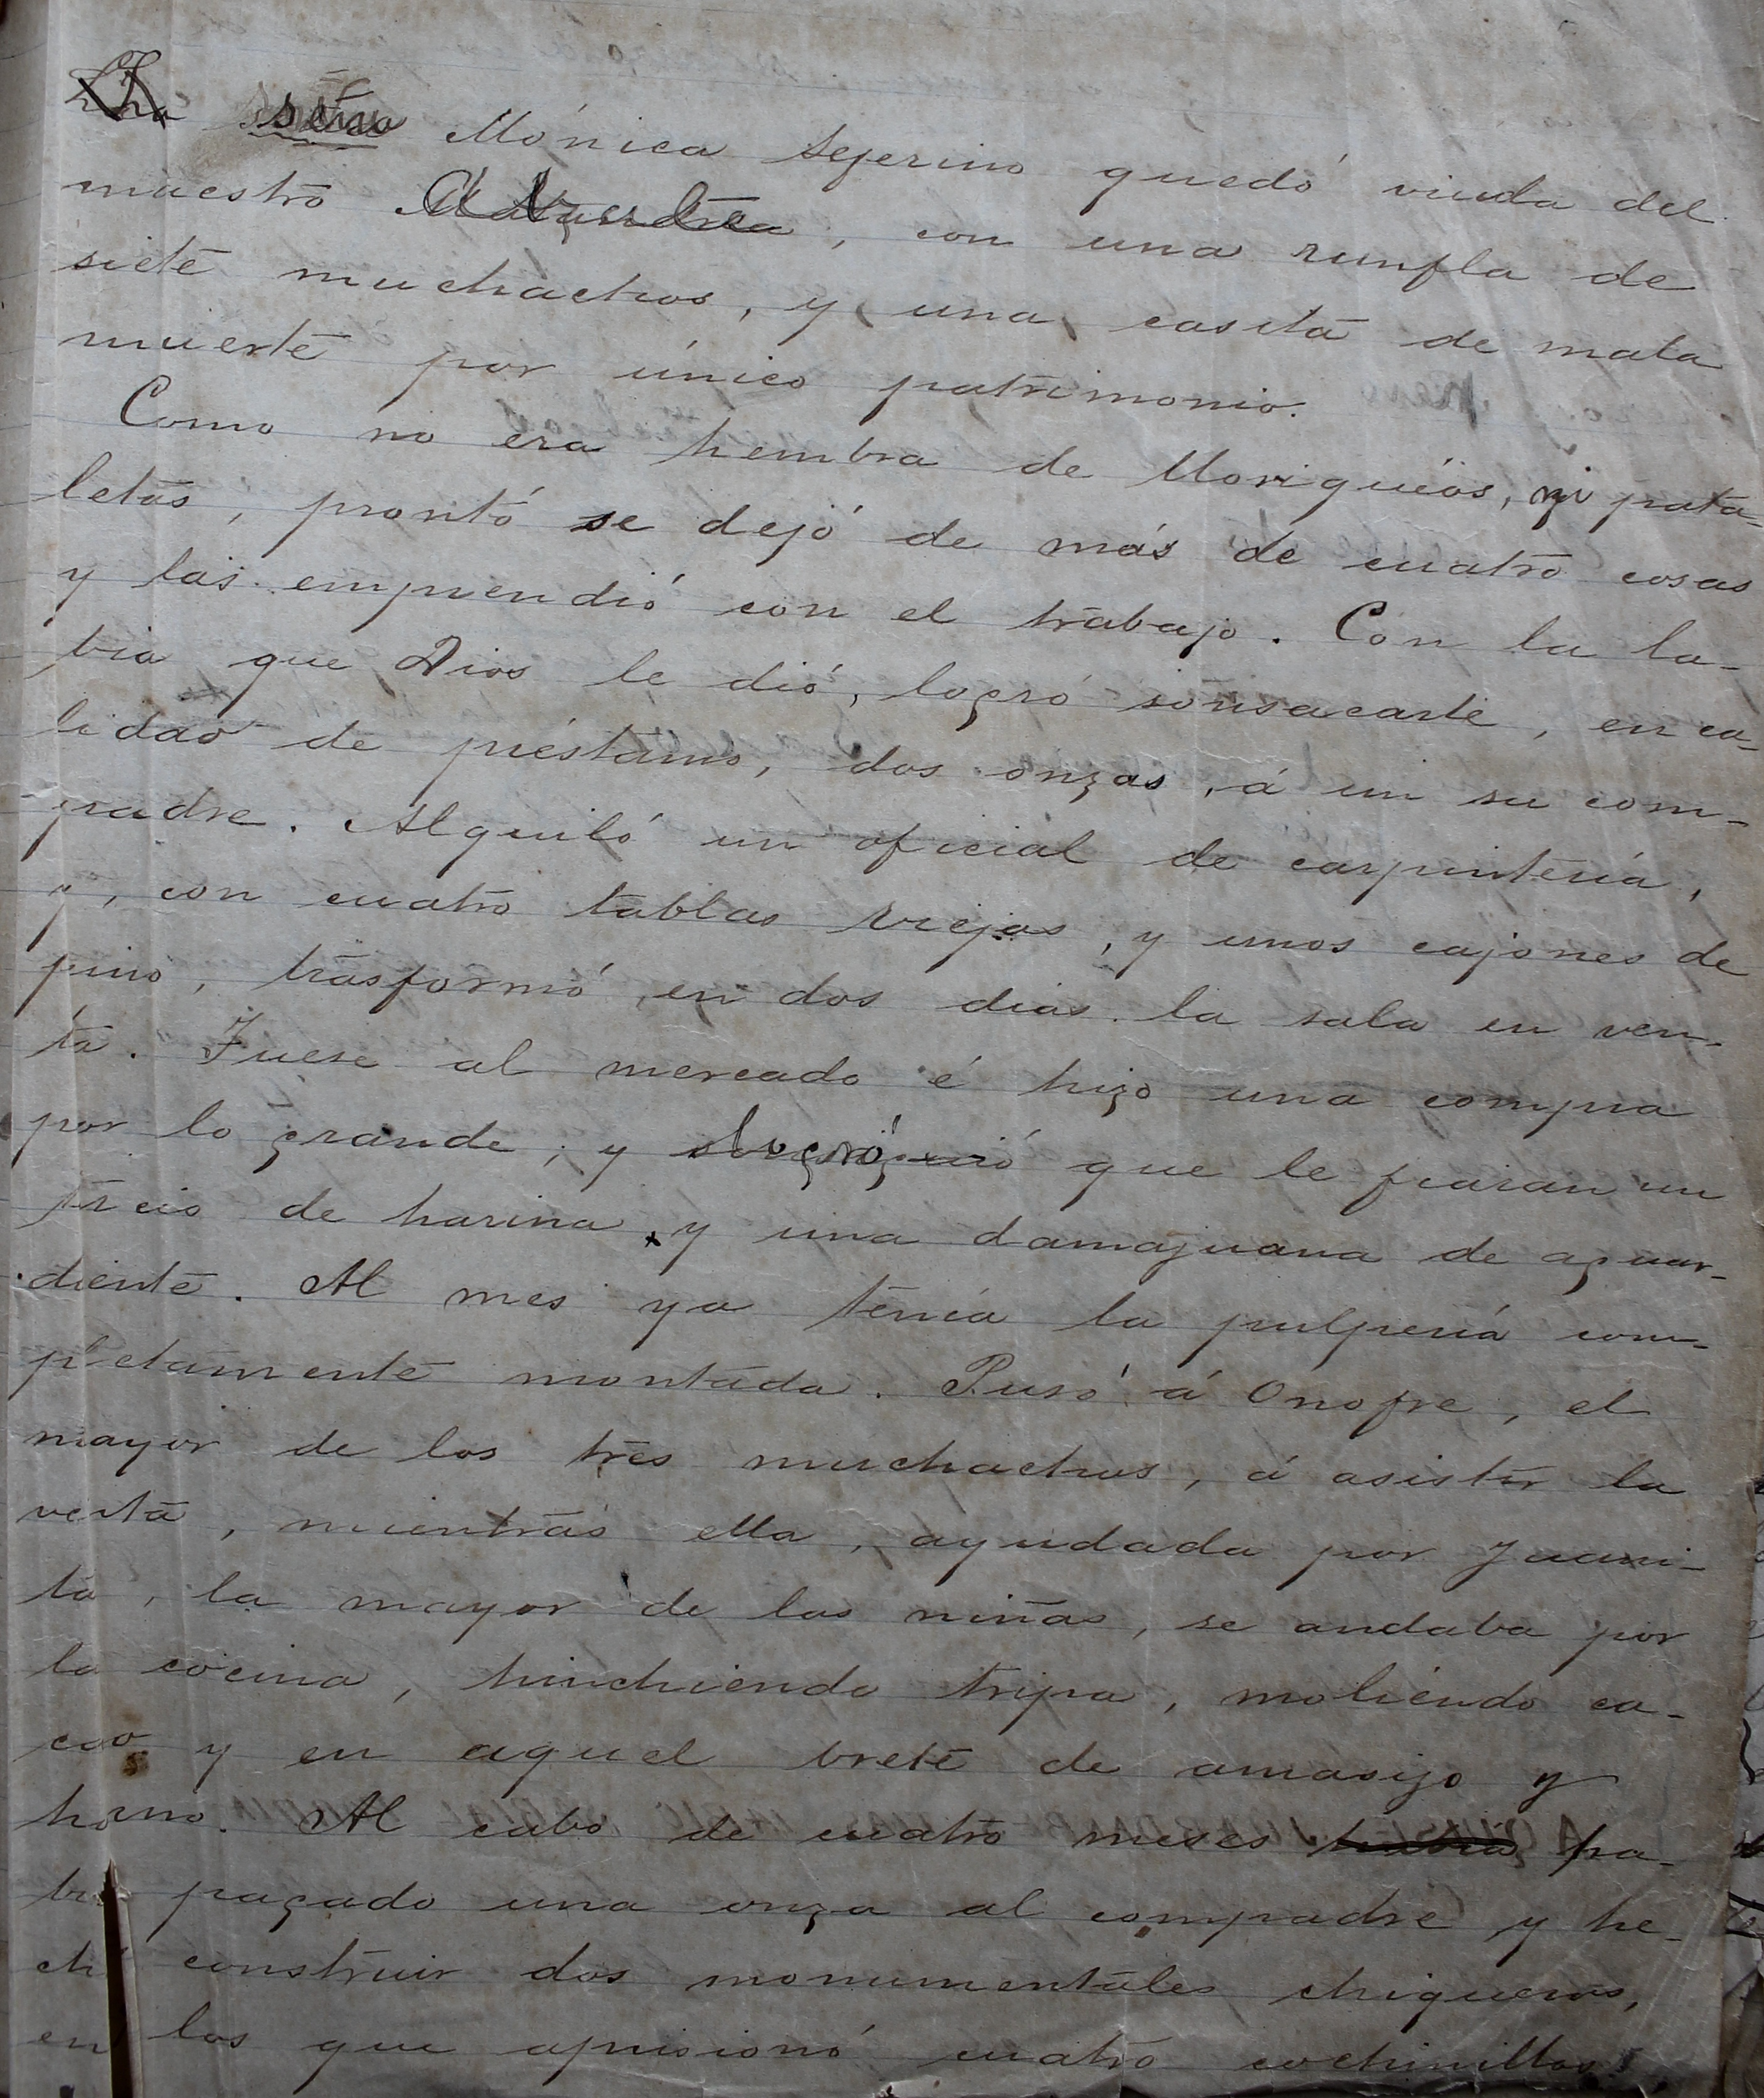 seña Mónica Seferino quedó viuda del
maestro , con una runfla de
siete muchachos, y una casita de mala
muerte por único patrimonio.
Como no era hembra de , ni pata-
letas, prontó se dejó de más de cuatro cosas
y las emprendió con el trabajo. Con la la-
bia que Dios le dió, logró sonsacarle, en ca-
lidad de préstamo, dos onzas, á un su com-
padre. Alquiló un oficial de carpintería,
y, con cuatro tablas viejas, y unos cajones de
pino, trasformó en dos días la sala en ven-
ta. Fuese al mercado é hizo una compra
por lo grande; y logró que le fiaran un
tercio de harina y una damajuana de aguar-
diente. Al mes ya tenía la pulpería com-
pletamente montada. Puso á Onofre, el
mayor de los tres muchachos, á asistir la
venta, mientras ella, ayudada por Juani-
ta, la mayor de las niñas, se andaba por
la cocina, hinchiendo tripa, moliendo ca-
cao y en aquel brete de amasijo y
horno. Al cabo de cuatro meses ha-
bía pagado una onza al compadre y he-
cho construir dos monumentales chiqueros,
en los que aprisionó cuatro cochinillos